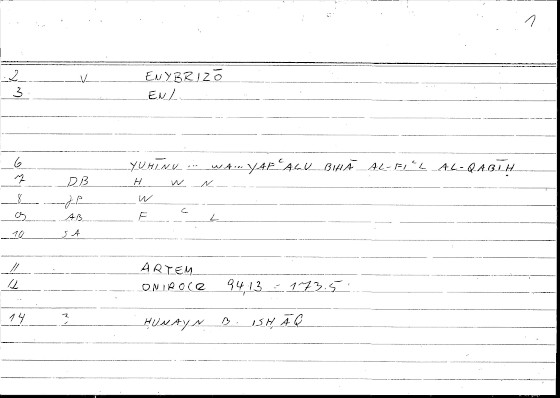 1
2 V ENYBRIZŌ
3 EN/
6 YUHĪNU ... WA...YAFᶜALU BIHĀ AL-FIᶜL AL-QABĪḤ
7 DB H W N
8 JP W
9 AB F ᶜ L
10 SA
11 ARTEM
12 ONIROCR 94,13 - 173.5
14 ? ḤUNAYN B. ISḤĀQ